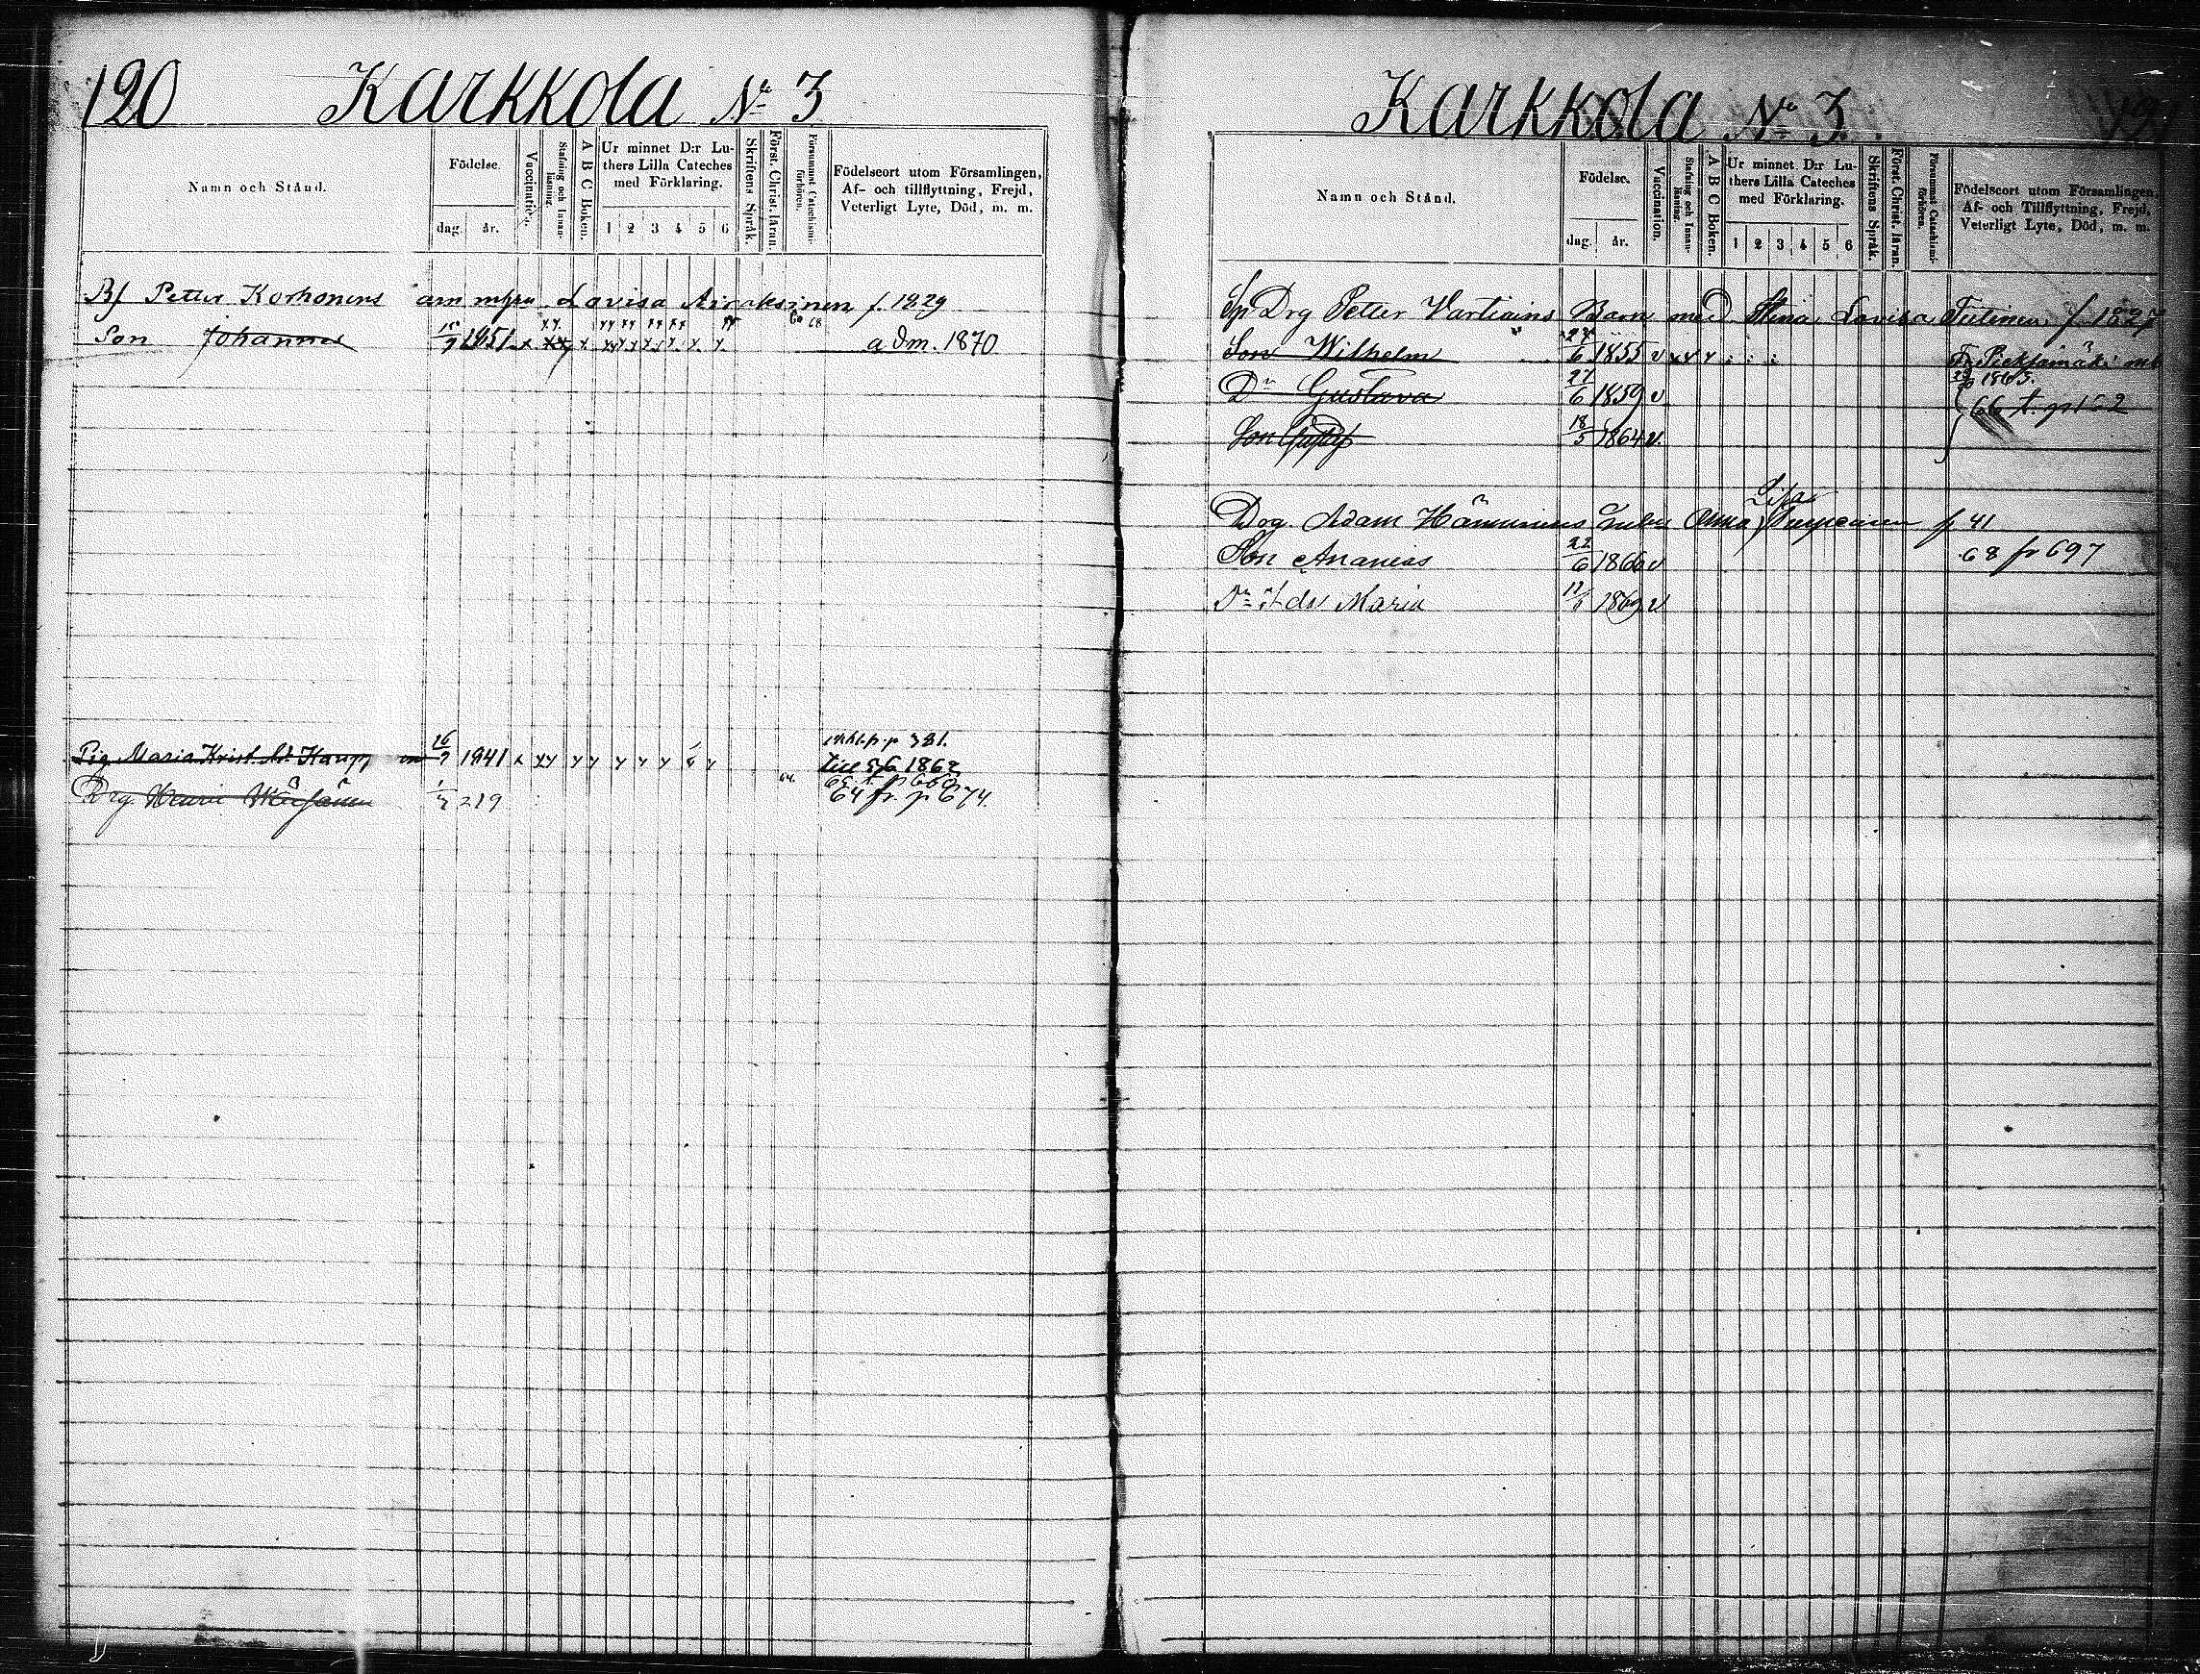 120 Karkkola No 3
Namn och Stånd.
Födelse.
dag. år.
Vaccination.
Stafning och Innanläsning.
A B C Boken.
Ur minnet D:r Luthers Lilla Cateches med Förklaring.
1 2 3 4 5 6
Skriftens Språk.
Först. Christ. läran.
Försummat Catechismiförhören.
Födelseort utom Församlingen, Af- och tillflyttning, Frejd, Veterligt Lyte, Död, m. m.
Bf Petter Korhonens barn m hru Lovisa Airaksinen f. 1829
Son Johannes 1851 adm. 1870
Pig. Maria Krist. 26/9 1841 p 381.
till 1862
Drg Henric 219 64 fr. p 674.
Karkkola No 3.
Namn och Stånd.
Födelse.
dag. år.
Vaccination.
Stafning och Innanläsning.
A B C Boken.
Ur minnet D:r Luthers Lilla Cateches med Förklaring.
1 2 3 4 5 6
Skriftens Språk.
Först. Christ. läran.
Försummat Catechismiförhören.
Födelseort utom Församlingen, Af- och Tillflyttning, Frejd, Veterligt Lyte, Död, m. m.
Sp Drg Petter Vartiains Barn med Stina Lovisa Tiitinen f. 1827
Son Wilhelm 24/6 1855 v Fr Pieksämäki
Dr Gustava 27/6 1859 v 1865.
66 t. p 152
Son 18/5 1864 v.
Lisa
Drg. Adam Hämäläinens Anna f 41
Son Ananias 22/6 1866 v 68 fr 697
Dr Ida Maria 1869 v